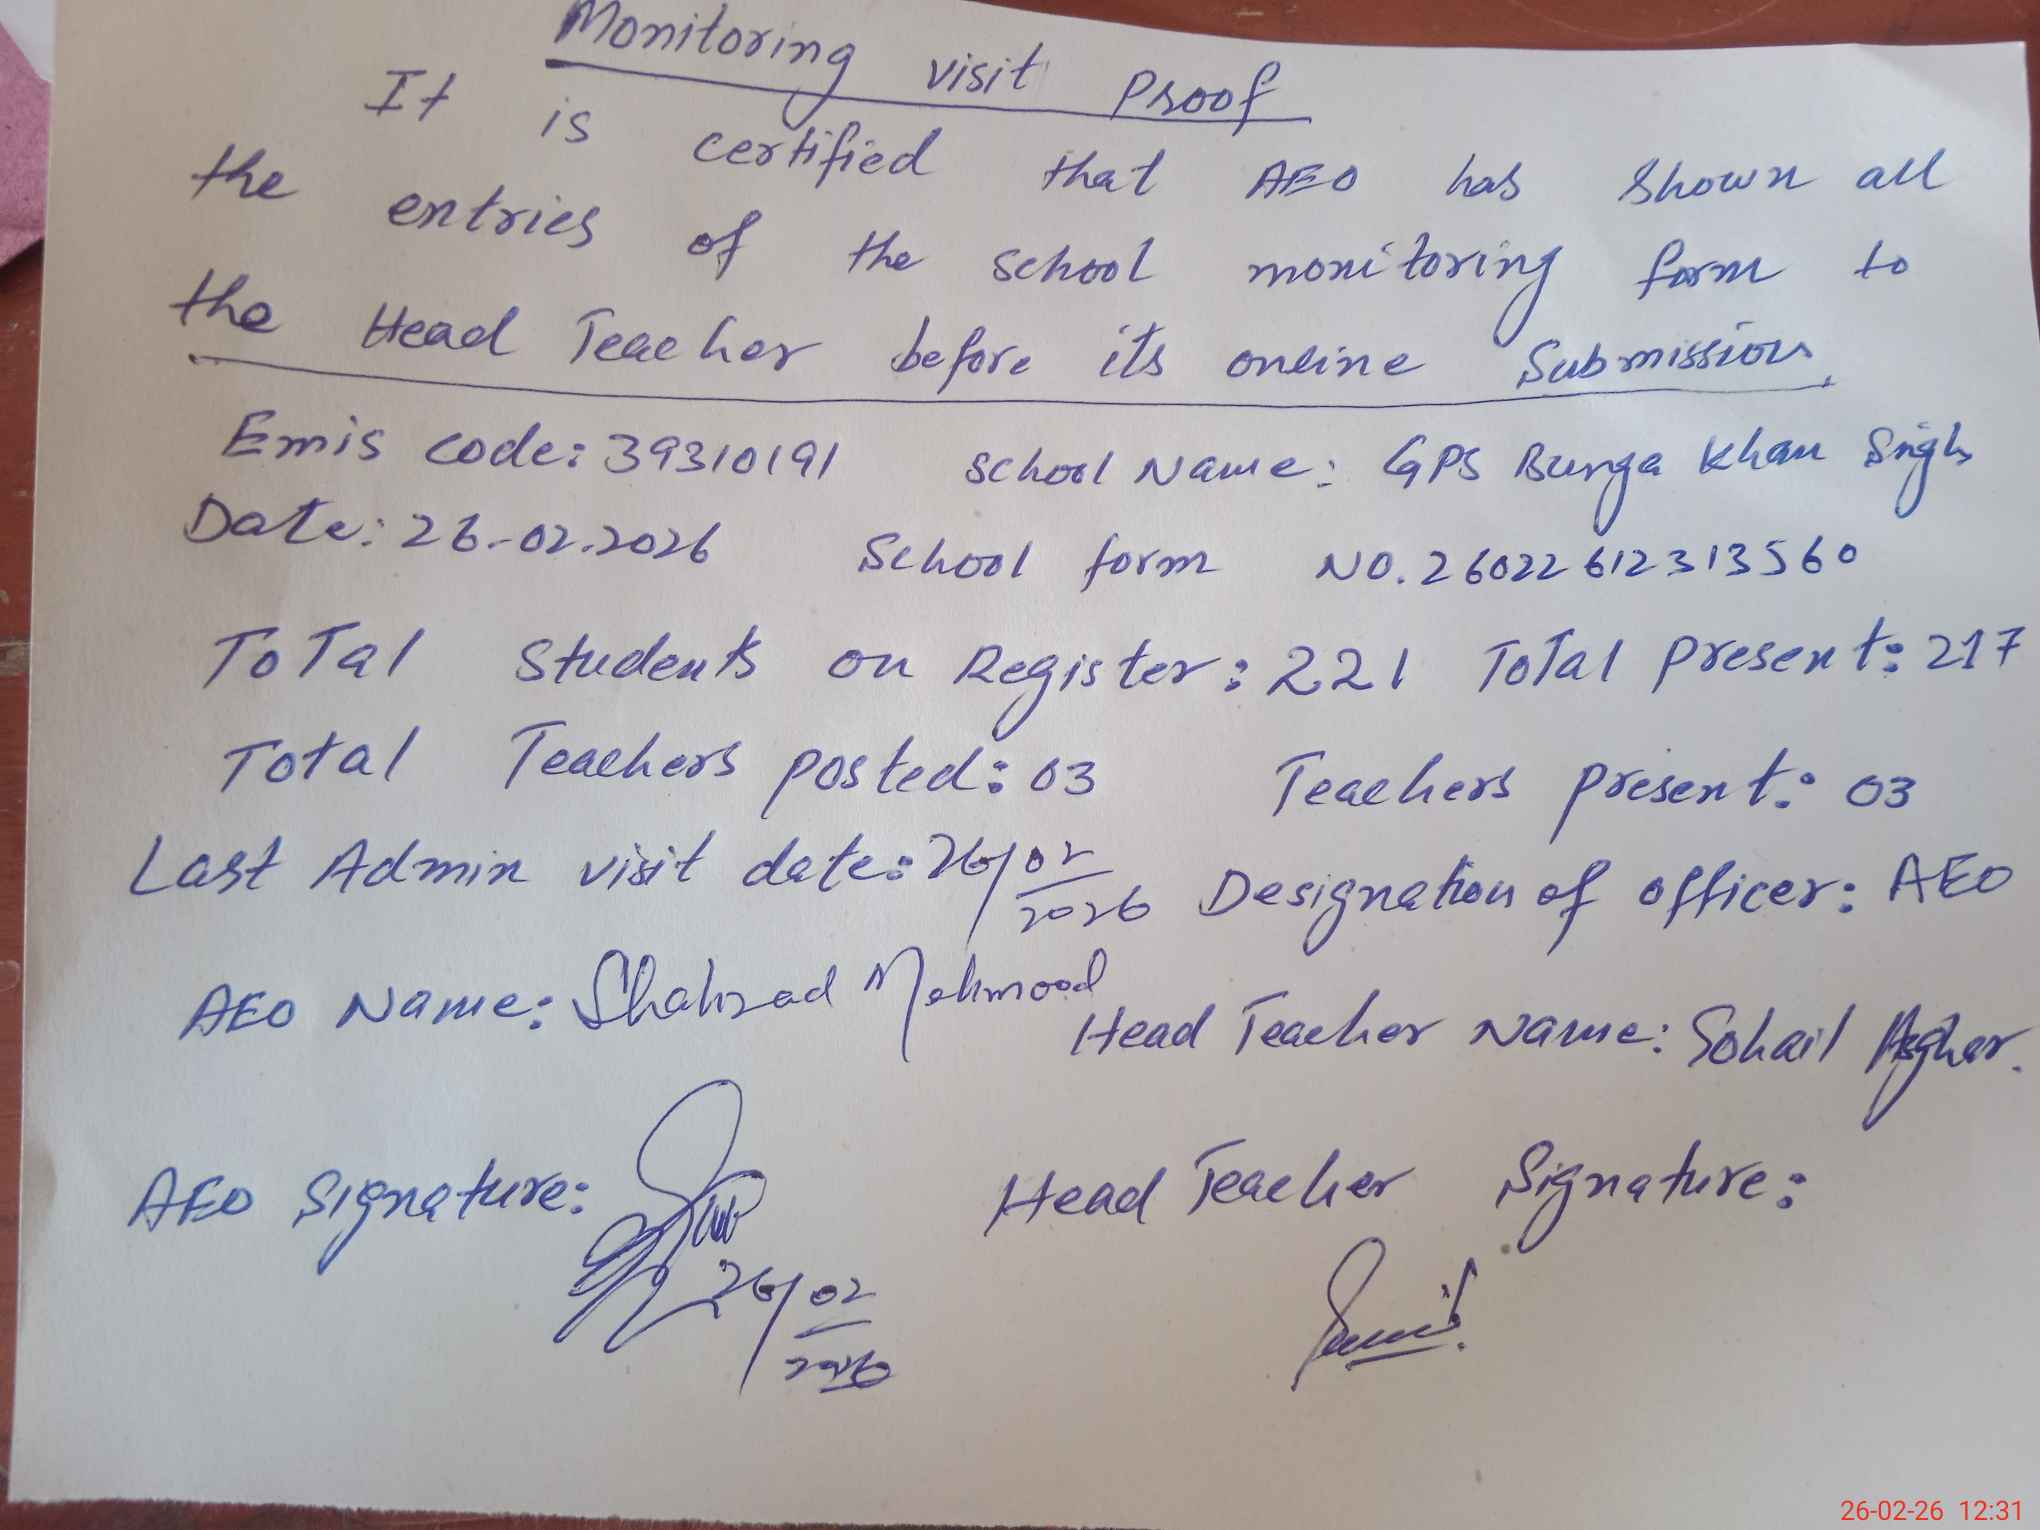 Monitoring visit Proof
It is certified that AEO has shown all
the entries of the school monitoring form to
the Head Teacher before its online Submission.
Emis code: 39310191 School Name: GPS Burga Khan Singh
Date: 26-02-2026 School form NO. 26022612313560
Total Students on Register: 221 Total present: 217
Total Teachers posted: 03 Teachers present: 03
Last Admin visit date: 26/02/2026 Designation of officer: AEO
AEO Name: Shahzad Mehmood Head Teacher Name: Sohail Asghar.
AEO Signature: Head Teacher Signature:
26/02/2026
26-02-26 12:31